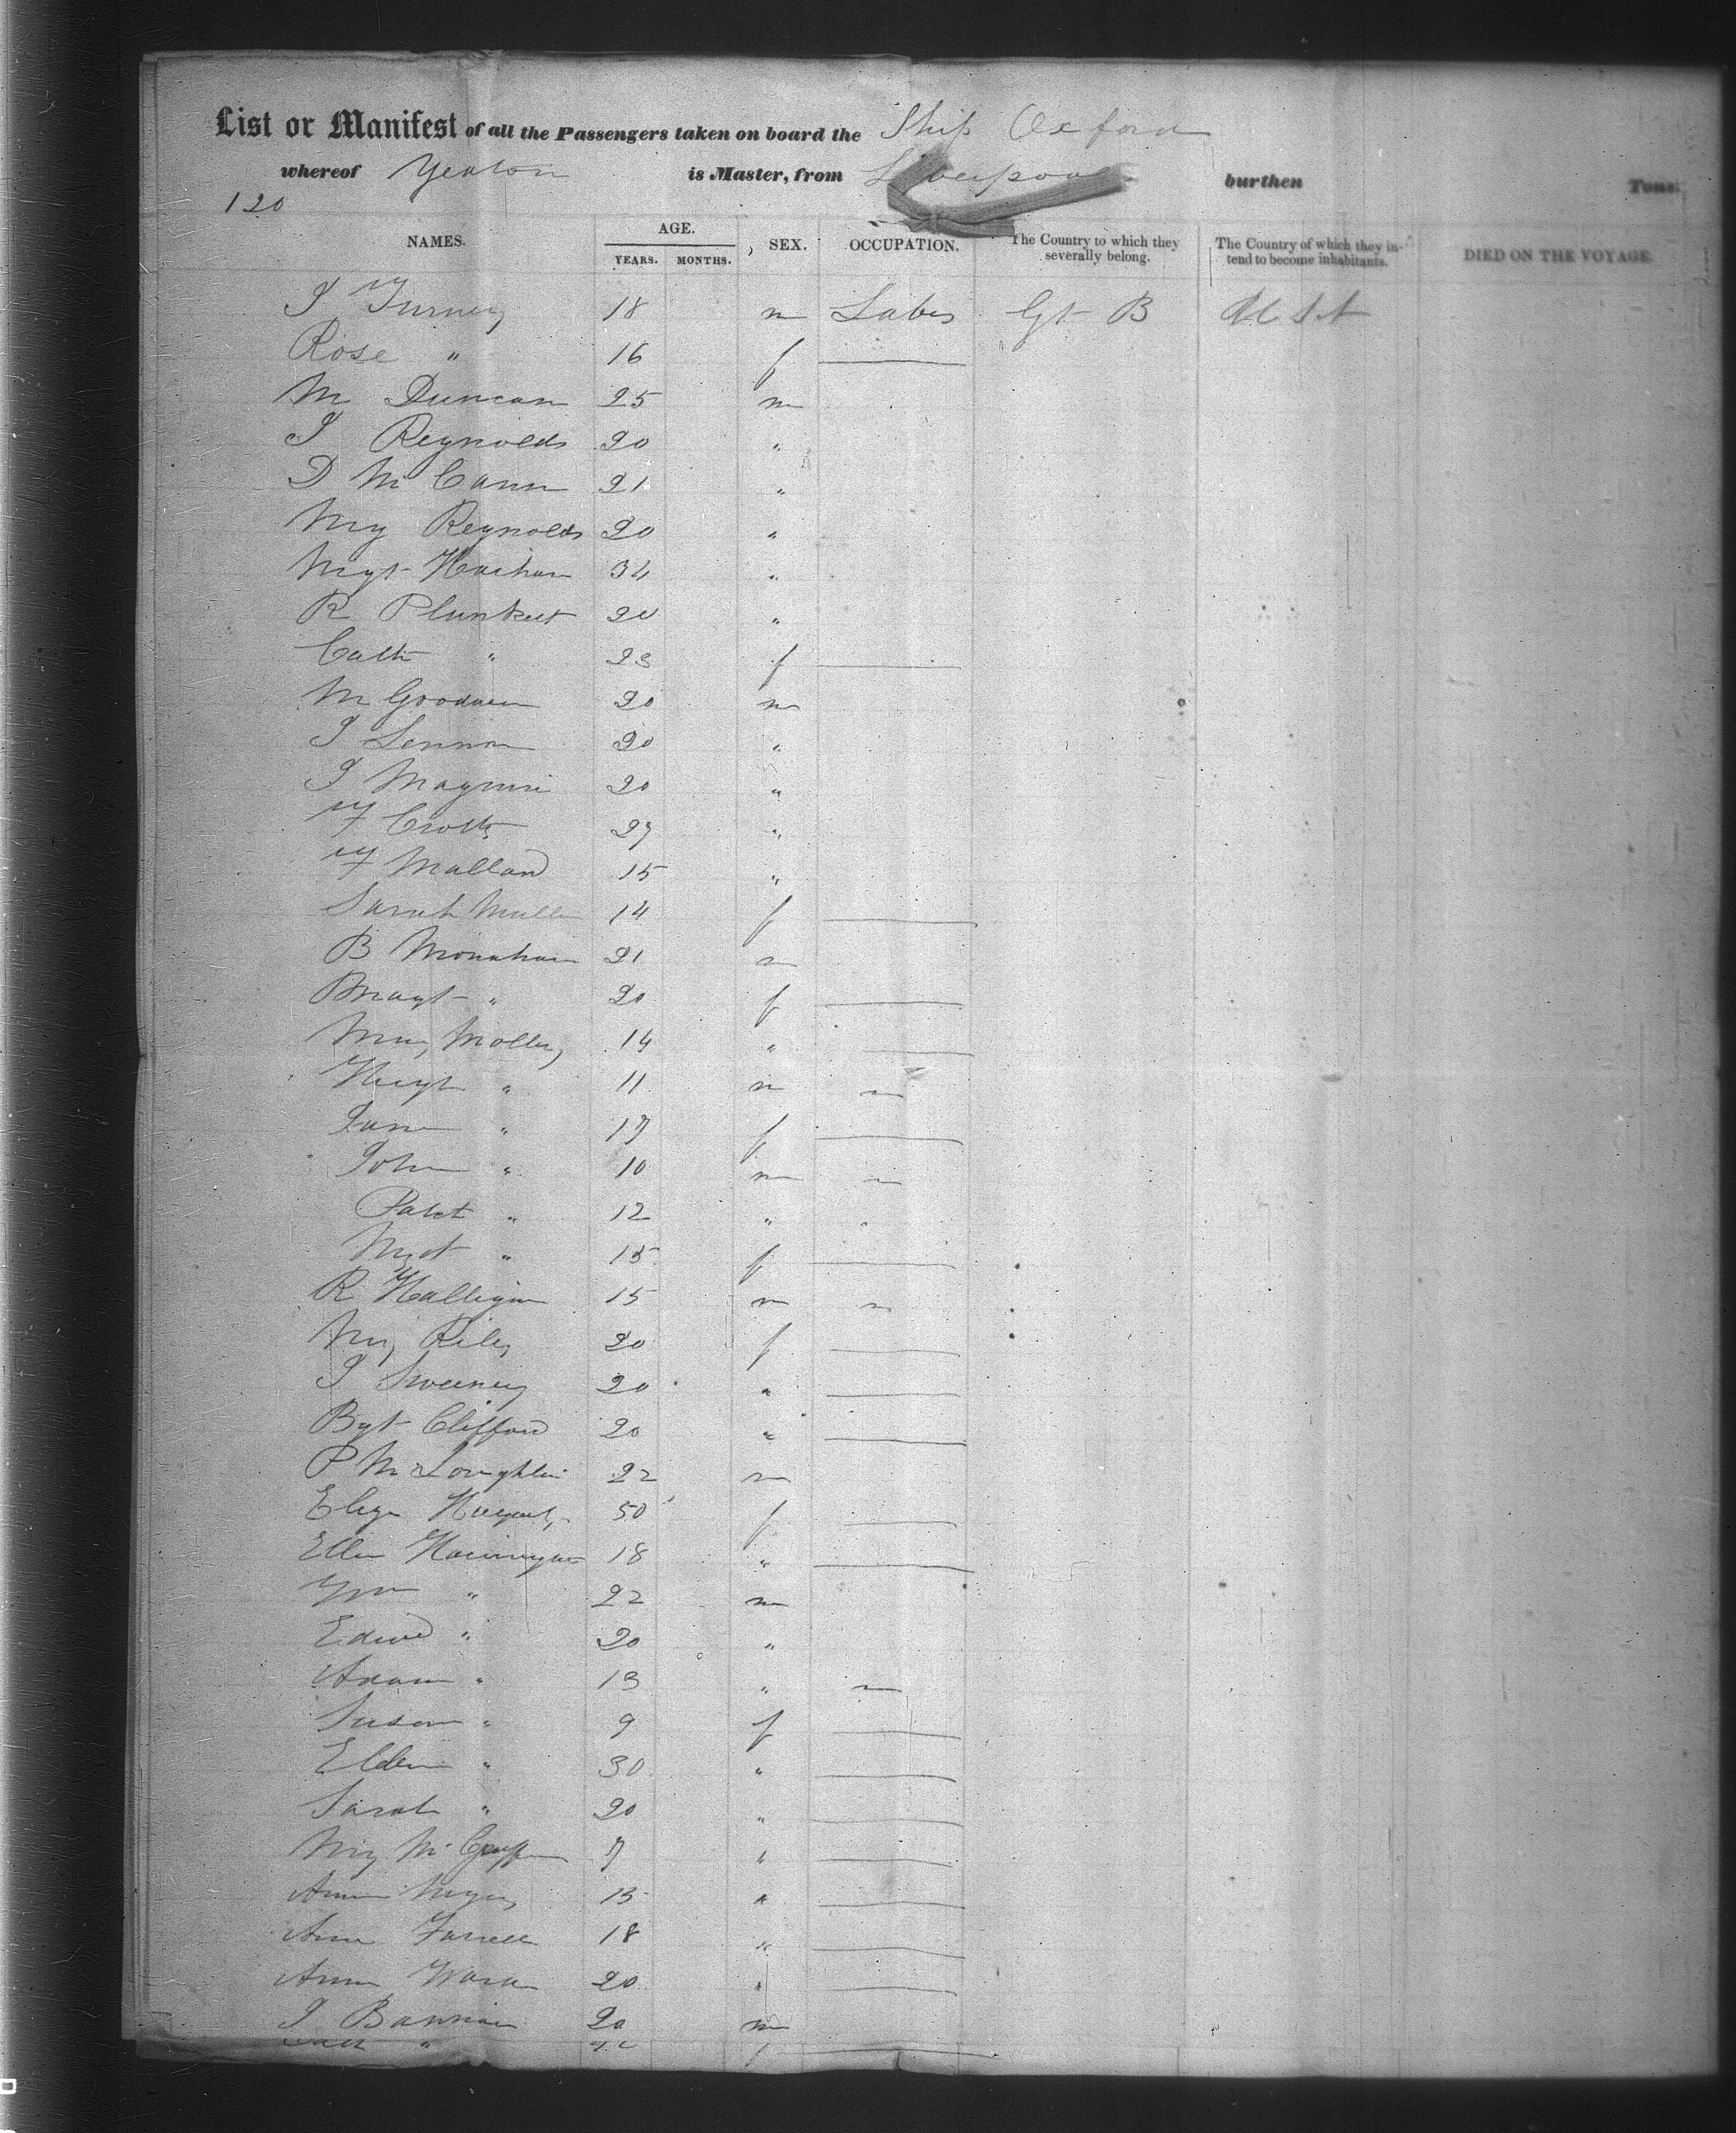 List or Manifest of all the Passengers taken on board the Ship Oxford
whereof Yeaton is Master, from Liverpool burthen Tons.
120
NAMES. AGE. YEARS. MONTHS. SEX. OCCUPATION. The Country to which they severally belong. The Country of which they intend to become inhabitants. DIED ON THE VOYAGE.
18 m Labr Gt B U St
Rose " 16 f
M Duncan 25 m
J Reynolds 20 "
D McCann 21 "
My Reynolds 20 "
Mgt 34 "
R Plunkett "
Cath " 23 f
M Goodwin 20 m
J Lennon 20 "
J 20 "
27 "
15 "
Sarah 14 f
B Monahan 21 m
" 20 f
14 "
" 11 m
Jane " 17 f
John " 10 m
Patct " 12 "
Mgt " 15 f
R Halligan 15 m
My Riley 20 f
J Sweeney 20 "
Bgt Clifford 20 "
P McLoughlin 22 m
50 f
Ellen 18 "
Wm " 22 m
Edwd " 20 "
Adam " 13 "
Susan " 9 f
Ellen " 30 "
Sarah " 20 "
My 7 "
"
Ann Farrell 18 "
Ann Ward 20 "
J Bannan 20 m
Cath " f